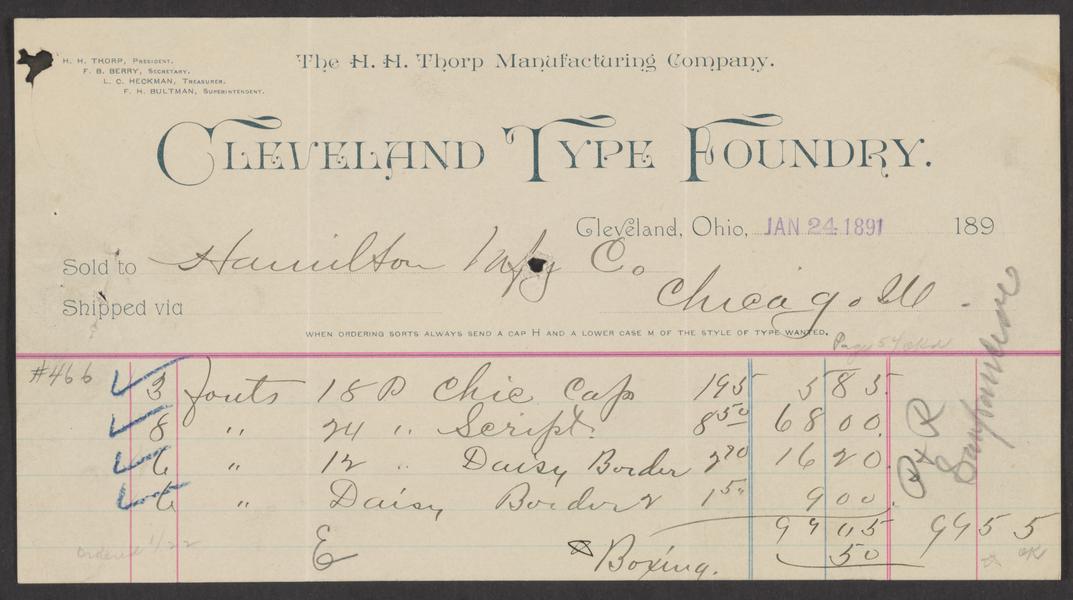 H. H. THORP, PRESIDENT.
F. B. BERRY, SECRETARY.
L. C. HECKMAN, TREASURER.
F. H. BULTMAN, SUPERINTENDENT.
The H. H. Thorp Manufacturing Company.
CLEVELAND TYPE FOUNDRY.
Cleveland, Ohio, JAN 24 1891 189
Sold to Hamilton Mfg Co
Shipped via Chicago Ill.
WHEN ORDERING SORTS ALWAYS SEND A CAP H AND A LOWER CASE M OF THE STYLE OF TYPE WANTED.
#466 3 fonts 18 P Chic Caps 195 585
8 " 24 " Script. 850 6800
6 " 12 " Daisy Border 270 1620
6 " Daisy Border 2 150 900
9905 9955
E Boxing. 50 OK
Ordered 1/22
P & R